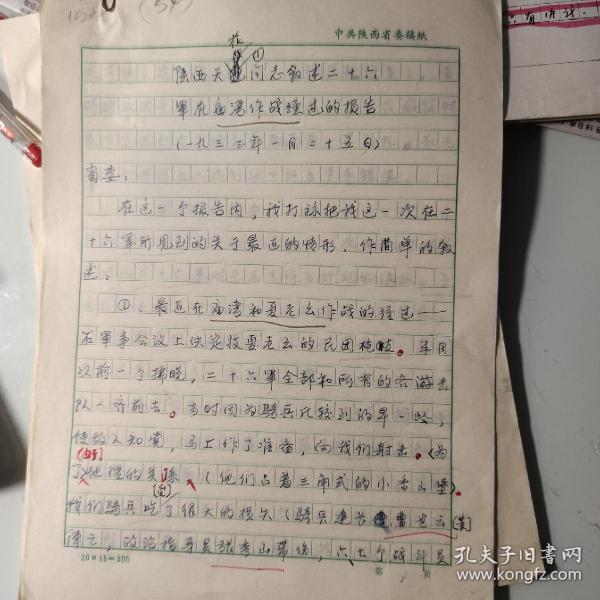 中共陕西省委稿纸
陕西天 同志叙述二十六
军在庙湾作战经过的报告
(一九三三年一月二十五日)
省委：
在这一个报告内，我打算把我这一次在二
十六军所见到的关于最近的情形，作简单的叙
述：
① 最近在庙湾和夏老幺作战的经过——
在军事会议上决定收夏老幺的民团枪枝。
次前一个拂晓，二十六军全部和所有的各游击
队一齐前去。当时因为骑兵比较到的早一些，
使敌人知觉，马上作了准备，向我们射击。(为
(由于)
了)地理的关系，(他们占着三角式的小香山堡)
我们骑兵吃了很大的损失(骑兵连长曹老云(等)
阵亡，政治指导员张秀山带伤，六七个战斗员
20×15=300
第 页
孔夫子旧书网
www.kongfz.com